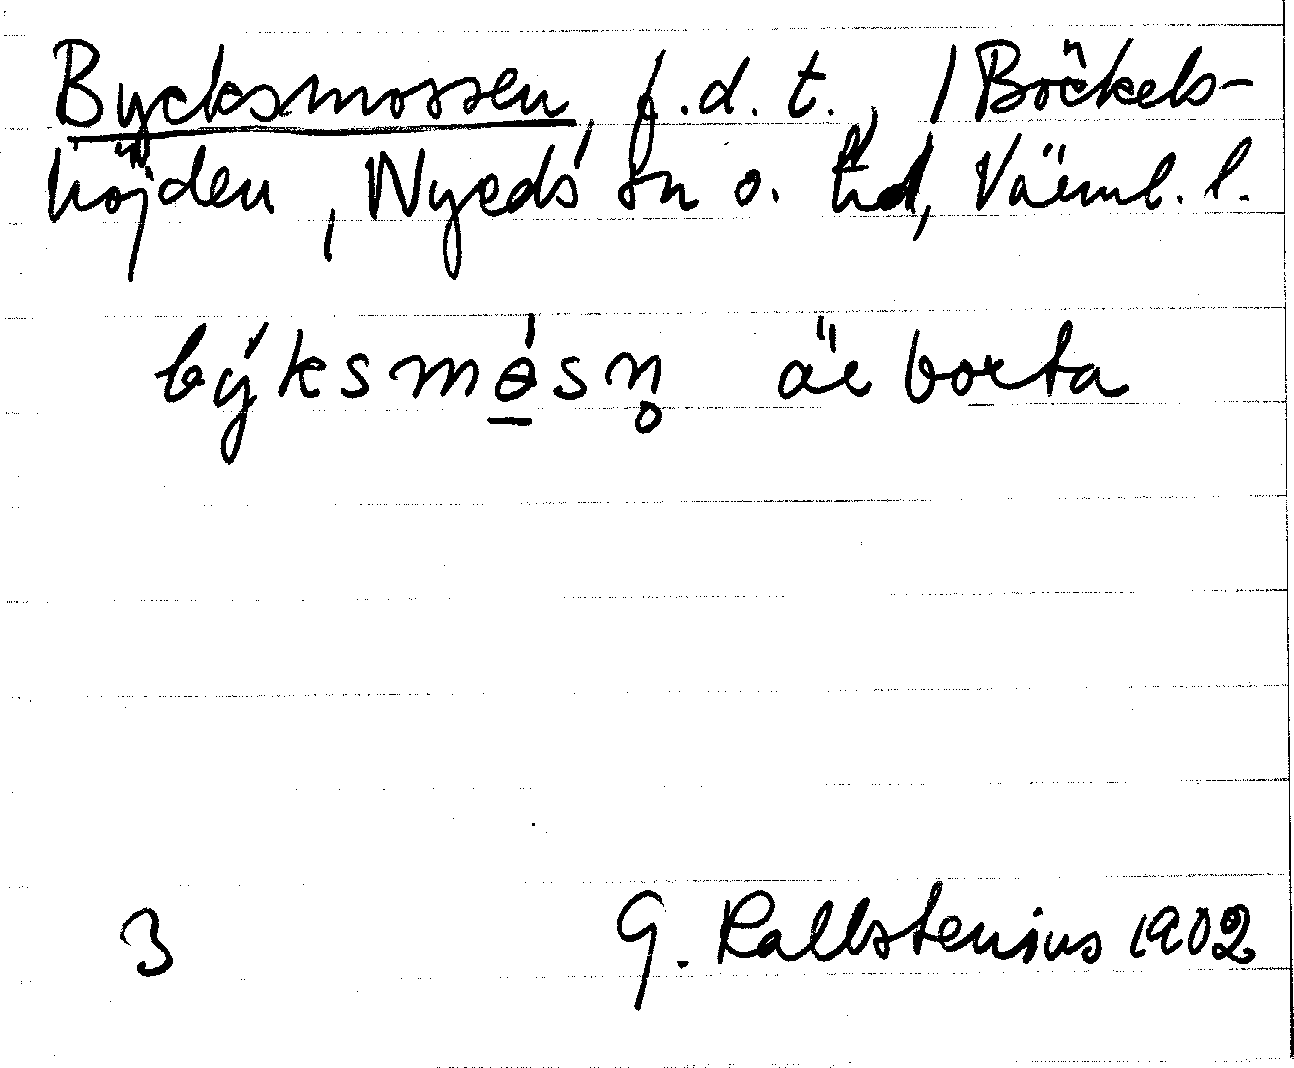 Bycksmossen, f.d. t., / Böckels-
höjden, Nyeds sn o. hd, Värml. l.
býksmǝ̱́sn̥ är borta
3 G. Kallstenius 1902